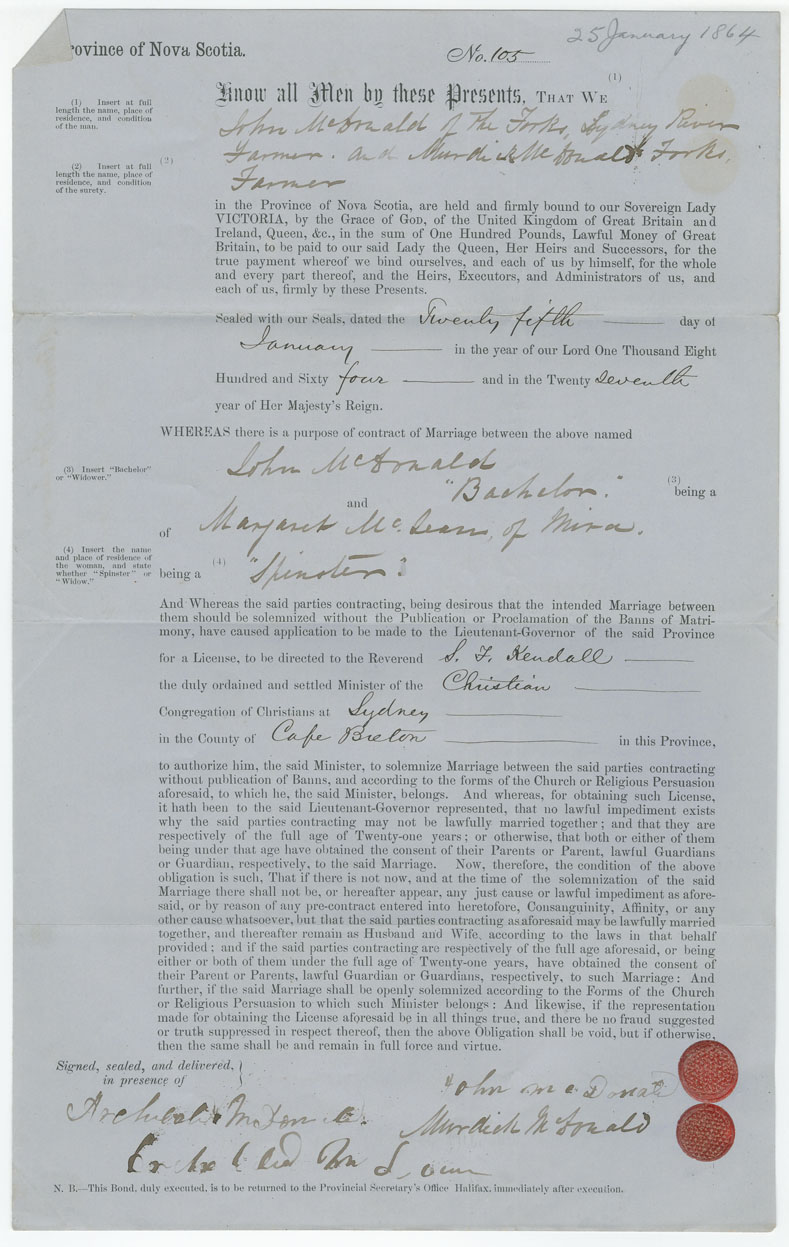 25 January 1864
rovince of Nova Scotia.
No. 105
(1)
Know all Men by these Presents, THAT WE
(1) Insert at full
length the name, place of
residence, and condition
of the man.
John McDonald of The Forks, Sydney River
(2) Insert at full
length the name, place of
residence, and condition
of the surety.
(2)
Farmer. and Murdick McDonald, Forks,
Farmer
in the Province of Nova Scotia, are held and firmly bound to our Sovereign Lady
VICTORIA, by the Grace of God, of the United Kingdom of Great Britain and
Ireland, Queen, &c., in the sum of One Hundred Pounds, Lawful Money of Great
Britain, to be paid to our said Lady the Queen, Her Heirs and Successors, for the
true payment whereof we bind ourselves, and each of us by himself, for the whole
and every part thereof, and the Heirs, Executors, and Administrators of us, and
each of us, firmly by these Presents.
Sealed with our Seals, dated the Twenty fifth day of
January in the year of our Lord One Thousand Eight
Hundred and Sixty four and in the Twenty seventh
year of Her Majesty's Reign.
WHEREAS there is a purpose of contract of Marriage between the above named
(3) Insert "Bachelor"
or "Widower."
John McDonald
"Bachelor." (3) being a
and
of Margaret McLean, of Mira.
(4) Insert the name
and place of residence of
the woman, and state
whether "Spinster" or
"Widow."
being a (4) "Spinster".
And Whereas the said parties contracting, being desirous that the intended Marriage between
them should be solemnized without the Publication or Proclamation of the Banns of Matri-
mony, have caused application to be made to the Lieutenant-Governor of the said Province
for a License, to be directed to the Reverend S. F. Kendall
the duly ordained and settled Minister of the Christian
Congregation of Christians at Sydney
in the County of Cape Breton in this Province,
to authorize him, the said Minister, to solemnize Marriage between the said parties contracting
without publication of Banns, and according to the forms of the Church or Religious Persuasion
aforesaid, to which he, the said Minister, belongs. And whereas, for obtaining such License,
it hath been to the said Lieutenant-Governor represented, that no lawful impediment exists
why the said parties contracting may not be lawfully married together; and that they are
respectively of the full age of Twenty-one years; or otherwise, that both or either of them
being under that age have obtained the consent of their Parents or Parent, lawful Guardians
or Guardian, respectively, to the said Marriage. Now, therefore, the condition of the above
obligation is such, That if there is not now, and at the time of the solemnization of the said
Marriage there shall not be, or hereafter appear, any just cause or lawful impediment as afore-
said, or by reason of any pre-contract entered into heretofore, Consanguinity, Affinity, or any
other cause whatsoever, but that the said parties contracting as aforesaid may be lawfully married
together, and thereafter remain as Husband and Wife, according to the laws in that behalf
provided; and if the said parties contracting are respectively of the full age aforesaid, or being
either or both of them under the full age of Twenty-one years, have obtained the consent of
their Parent or Parents, lawful Guardian or Guardians, respectively, to such Marriage: And
further, if the said Marriage shall be openly solemnized according to the Forms of the Church
or Religious Persuasion to which such Minister belongs: And likewise, if the representation
made for obtaining the License aforesaid be in all things true, and there be no fraud suggested
or truth suppressed in respect thereof, then the above Obligation shall be void, but if otherwise,
then the same shall be and remain in full force and virtue.
Signed, sealed, and delivered,
in presence of
John McDonald
Murdick McDonald
N. B.—This Bond, duly executed, is to be returned to the Provincial Secretary's Office Halifax, immediately after execution.